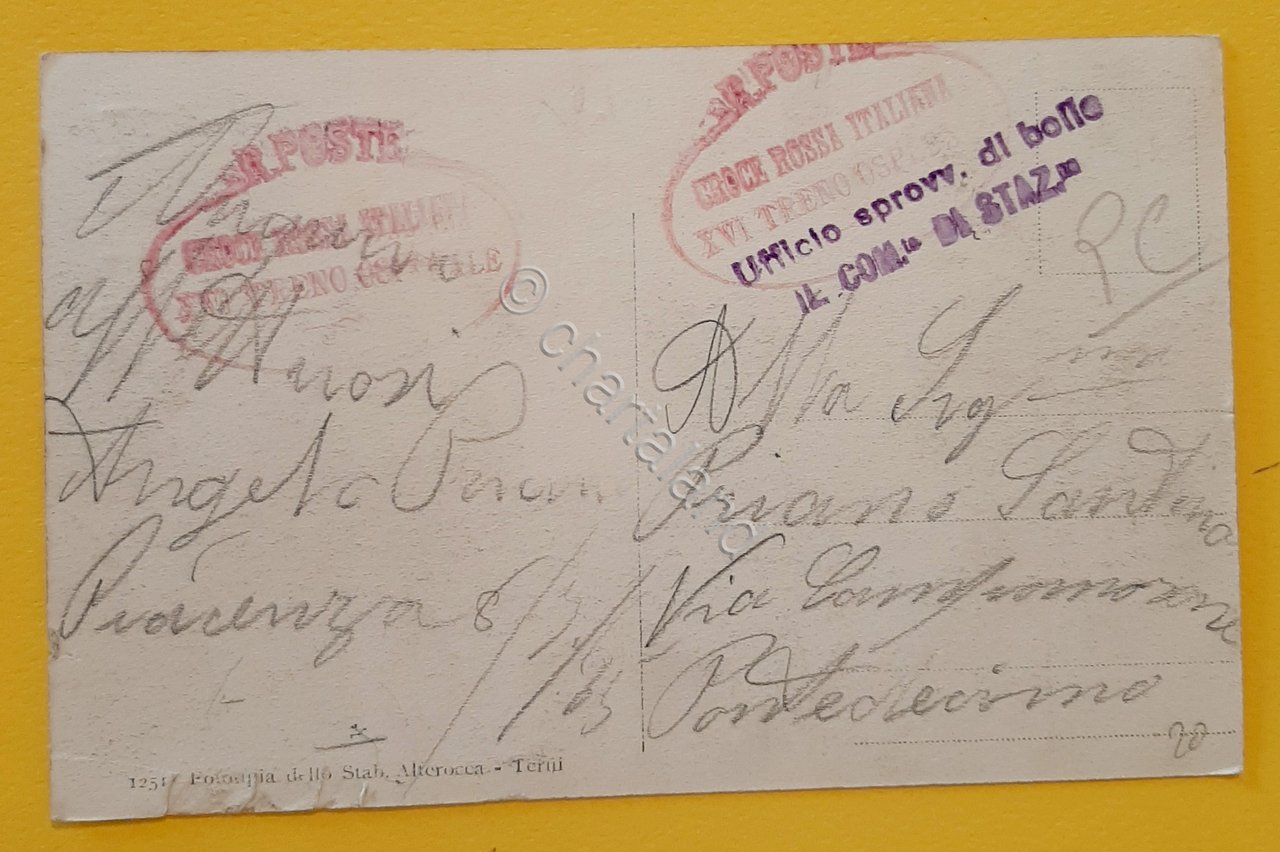 R. POSTE
CROCE ROSSA ITALIANA
XVI TRENO OSPEDALE
Angelo
Piacenza 8/
R. POSTE
CROCE ROSSA ITALIANA
XVI TRENO OSPED
Ufficio sprovv. di bollo
IL COM.te DI STAZ.ne
PC
Alla Sig
Priano Santina
Via Campomorone
Pontedecimo
20
1251 Fototipia dello Stab. Alterocca - Terni
© chartaland